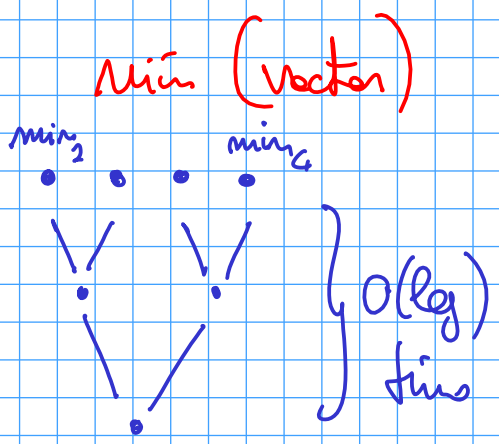 min (vector)
min₂ min₄
O(log)
time